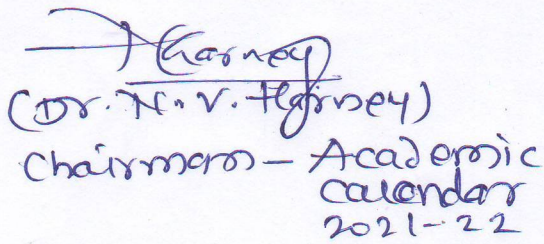 Harney
(Dr. N. V. Harney)
Chairman - Academic
Calendar
2021-22